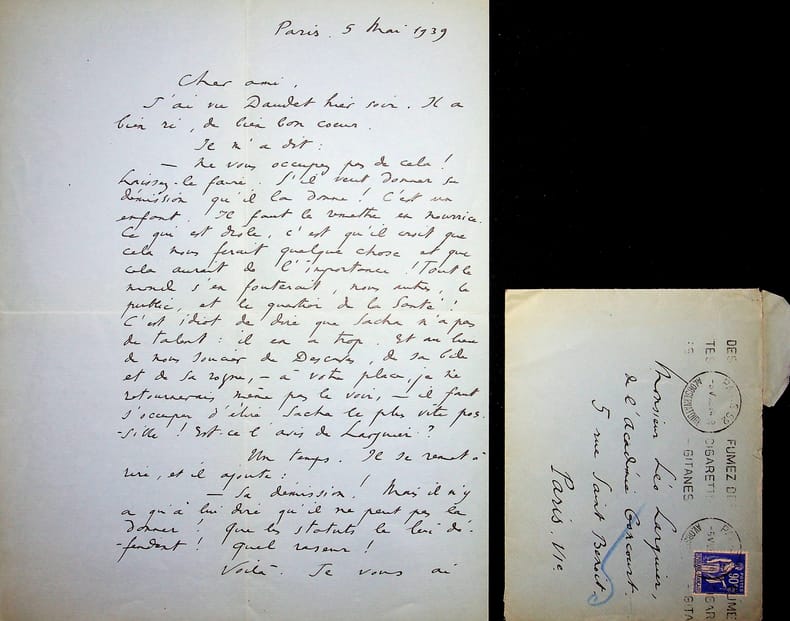 Paris. 5 Mai 1939
Cher ami,
J'ai vu Daudet hier soir. Il a
bien ri, de bien bon coeur.
Il m'a dit :
— Ne vous occupez pas de cela !
Laissez-le faire. S'il veut donner sa
démission qu'il la donne ! C'est un
enfant. Il faut le remettre en nourrice.
Ce qui est drôle, c'est qu'il croit que
cela nous ferait quelque chose et que
cela aurait de l'importance ! Tout le
monde s'en fouterait, nous autres, le
public, et le quartier de la Santé !
C'est idiot de dire que Sacha n'a pas
de talent : il en a trop. Et au lieu
de nous soucier de Descaves, de sa bile
et de sa rogne, — à votre place je ne
retournerais même pas le voir, — il faut
s'occuper d'élire Sacha le plus vite pos-
-sible ! Est-ce l'avis de Larguier ?
Un temps. Il se remet à
rire, et il ajoute :
— Sa démission ! Mais il n'y
a qu'à lui dire qu'il ne peut pas la
donner ! que les statuts le lui dé-
-fendent ! quel raseur !
Voilà. Je vous ai
Monsieur Léo Larguier,
de l'académie Goncourt.
5 rue Saint Benoit.
Paris. VIe
DES
FUMEZ
CIGARETT
GITANES
90c